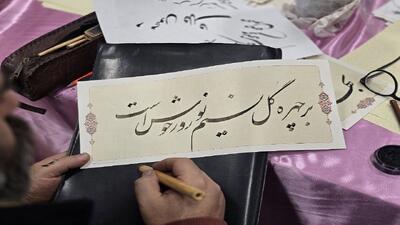 بر چهره گل نسیم نوروز خوش است